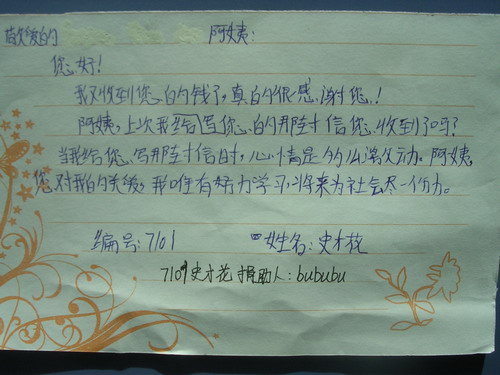 敬爱的 阿姨:
您好!
我又收到您的钱了,真的很感谢您.!
阿姨,上次我给写您的那封信您收到了吗?
当我给您写那封信时,心情是多么激动。阿姨,
您对我的关爱,我唯有努力学习,将来为社会尽一份力。
编号:7101 姓名:史才花
7101史才花 捐助人:bububu